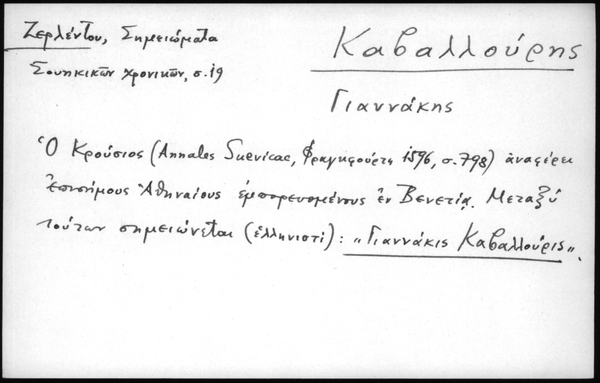 Ζερλέντου, Σημειώματα
Σουηκικῶν χρονικῶν, σ. 19
Καβαλλούρης
Γιαννάκης
Ὁ Κρούσιος (Annales Suevicae, Φραγκφούρτη 1596, σ. 798) ἀναφέρει
ἐπισήμους Ἀθηναίους ἐμπορευομένους ἐν Βενετίᾳ. Μεταξὺ
τούτων σημειώνεται (ἑλληνιστί): „Γιαννάκις Καβαλλούρις".